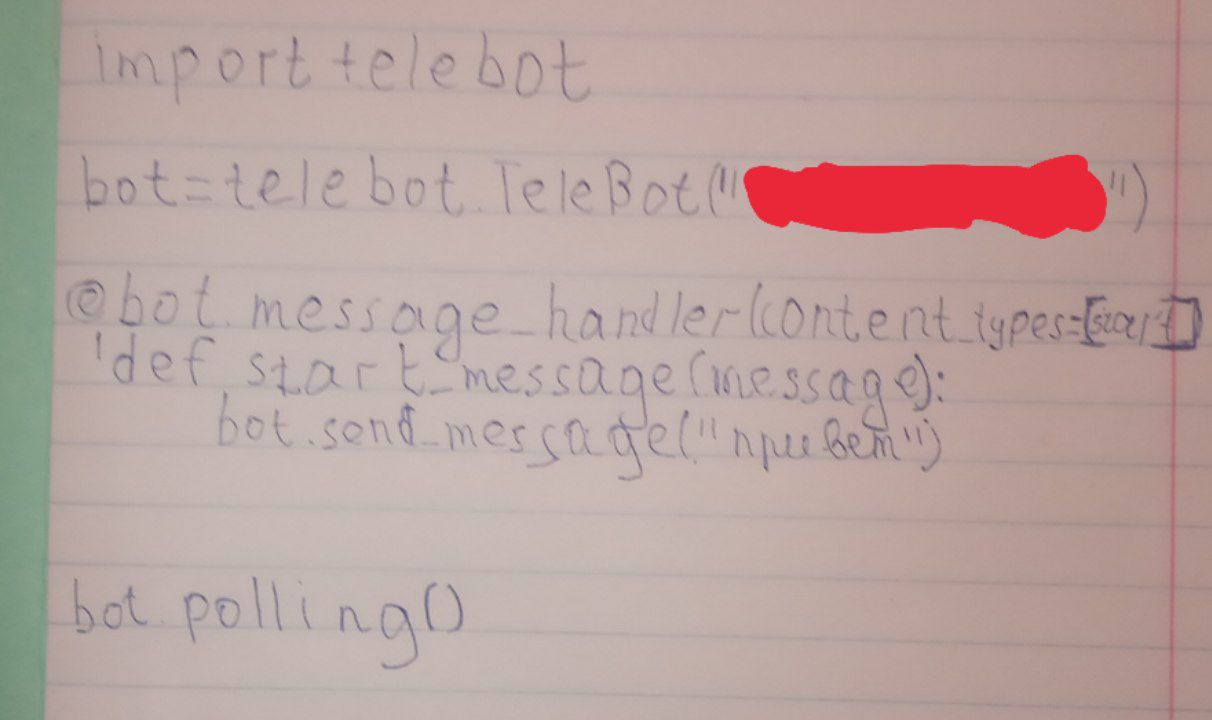 import telebot
bot=telebot.TeleBot("")
@bot.message_handler(content_types=[start]
'def start_message(message):
bot.send_message("привет")
bot.polling()